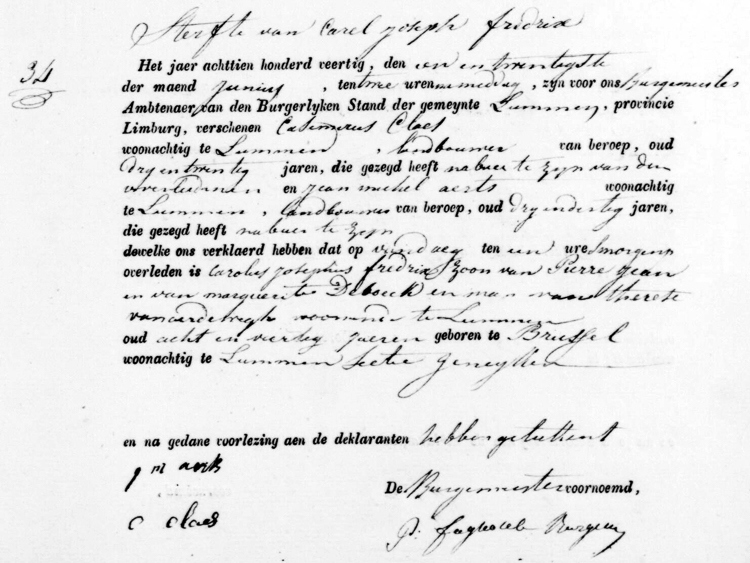 Sterfte van Carel joseph fredrix
34
Het jaer achttien honderd veertig, den een en twentigste
der maend junius, ten twee uren namiddag, zyn voor ons Burgemeester
Ambtenaer van den Burgerlyken Stand der gemeynte Lummen, provincie
Limburg, verschenen Casimirus Claes
woonachtig te Lummen, landbouwer van beroep, oud
dryentwenteg jaren, die gezegd heeft nabuer te zyn van den
overledenen en jean michel aerts woonachtig
te Lummen, landbouwer van beroep, oud dryenderteg jaren,
die gezegd heeft nabuer te zyn
dewelke ons verklaerd hebben dat op vandaeg ten een ure smorgens
overleden is carolus josephus fredrix zoon van Pierre jean
en van marguerite Deboeck en man van therese
te Lummen
oud acht en vierteg jaeren geboren te Brussel
woonachtig te Lummen sectie geneyken
en na gedane voorlezing aen de deklaranten hebben getekent
j m aerts
De Burgemeester voornoemd,
C Claes